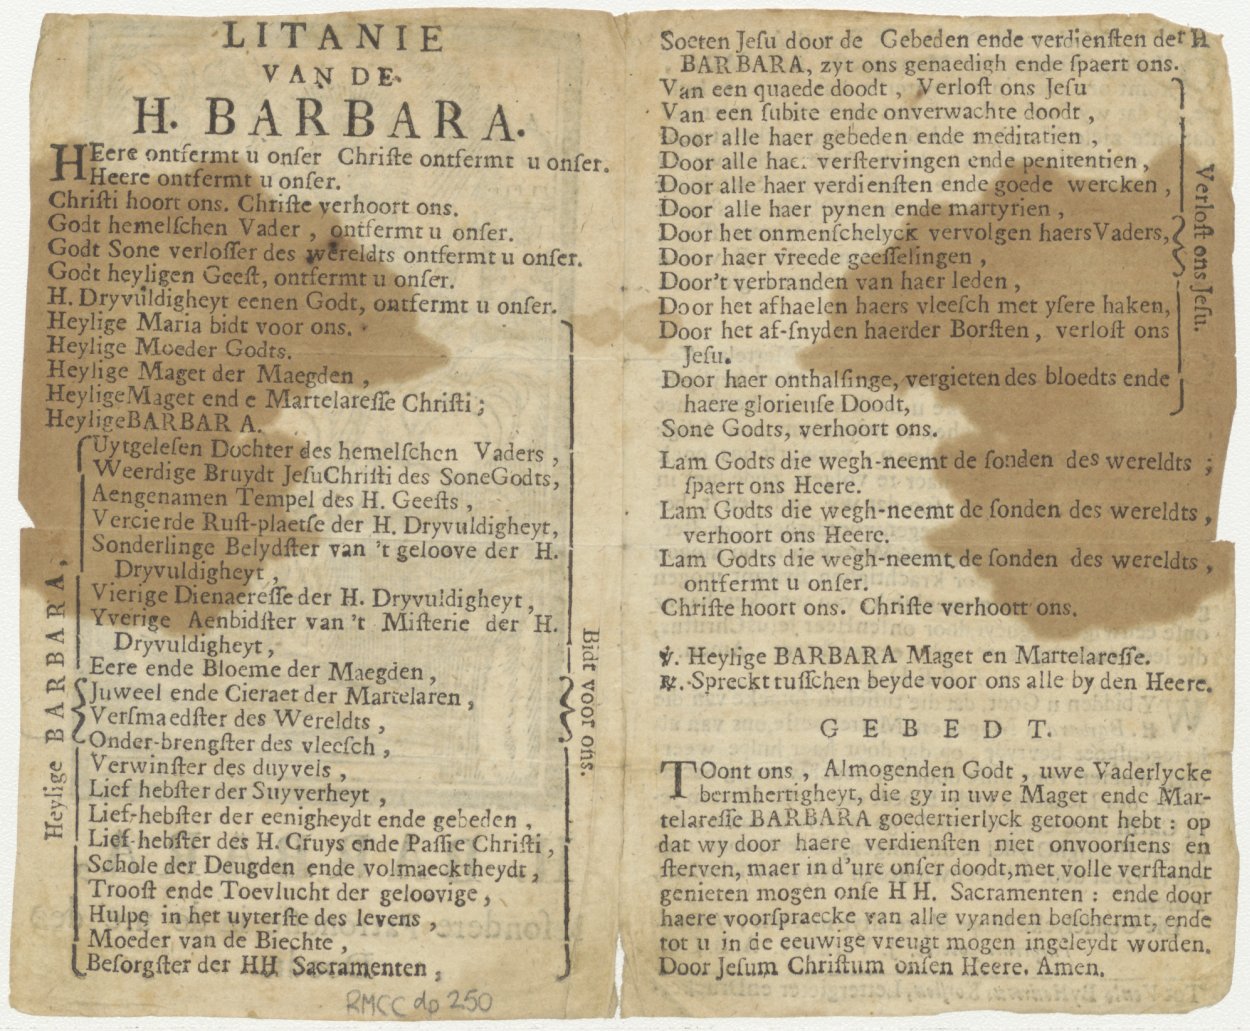 LITANIE
VAN DE
H. BARBARA.
HEere ontfermt u onser Christe ontfermt u onser.
Heere ontfermt u onser.
Christi hoort ons. Christe verhoort ons.
Godt hemelschen Vader , ontfermt u onser.
Godt Sone verlosser des wereldts ontfermt u onser.
Godt heyligen Geest, ontfermt u onser.
H. Dryvuldigheyt eenen Godt, ontfermt u onser.
Heylige Maria bidt voor ons.
Heylige Moeder Godts.
Heylige Maget der Maegden ,
Heylige Maget end e Martelaresse Christi ;
Heylige BARBAR A.
Heylige BARBARA,
Uytgelesen Dochter des hemelschen Vaders ,
Weerdige Bruydt Jesu Christi des Sone Godts,
Aengenamen Tempel des H. Geests ,
Vercierde Rust-plaetse der H. Dryvuldigheyt,
Sonderlinge Belydster van 't geloove der H.
Dryvuldigheyt ,
Vierige Dienaeresse der H. Dryvuldigheyt ,
Yverige Aenbidster van 't Misterie der H.
Dryvuldigheyt ,
Eere ende Bloeme der Maegden ,
Juweel ende Cieraet der Martelaren ,
Versmaedster des Wereldts ,
Onder-brengster des vleesch ,
Verwinster des duyvels ,
Lief hebster der Suyverheyt ,
Lief-hebster der eenigheydt ende gebeden ,
Lief-hebster des H. Cruys ende Passie Christi ,
Schole der Deugden ende volmaecktheydt ,
Troost ende Toevlucht der geloovige ,
Hulpe in het uyterste des levens ,
Moeder van de Biechte ,
Besorgster der HH Sacramenten ,
Bidt voor ons.
RMCC dp 250
Soeten Jesu door de Gebeden ende verdiensten der H
BARBARA, zyt ons genaedigh ende spaert ons.
Van een quaede doodt , Verlost ons Jesu
Van een subite ende onverwachte doodt ,
Door alle haer gebeden ende meditatien ,
Door alle hae. verstervingen ende penitentien ,
Door alle haer verdiensten ende goede wercken ,
Door alle haer pynen ende martyrien ,
Door het onmenschelyck vervolgen haers Vaders,
Door haer vreede geesselingen ,
Door't verbranden van haer leden ,
Door het afhaelen haers vleesch met ysere haken,
Door het af-snyden haerder Borsten , verlost ons
Jesu.
Door haer onthalsinge, vergieten des bloedts ende
haere glorieuse Doodt,
Verlost ons Jesu.
Sone Godts, verhoort ons.
Lam Godts die wegh-neemt de sonden des wereldts ;
spaert ons Heere.
Lam Godts die wegh-neemt de sonden des wereldts ,
verhoort ons Heere.
Lam Godts die wegh-neemt de sonden des wereldts ,
ontfermt u onser.
Christe hoort ons. Christe verhoort ons.
℣. Heylige BARBARA Maget en Martelaresse.
℟. Spreckt tusschen beyde voor ons alle by den Heere.
GEBEDT.
TOont ons , Almogenden Godt , uwe Vaderlycke
bermhertigheyt, die gy in uwe Maget ende Mar-
telaresse BARBARA goedertierlyck getoont hebt : op
dat wy door haere verdiensten niet onvoorsiens en
sterven, maer in d'ure onser doodt, met volle verstandt
genieten mogen onse HH. Sacramenten : ende door
haere voorspraecke van alle vyanden beschermt, ende
tot u in de eeuwige vreugt mogen ingeleydt worden.
Door Jesum Christum onsen Heere. Amen.